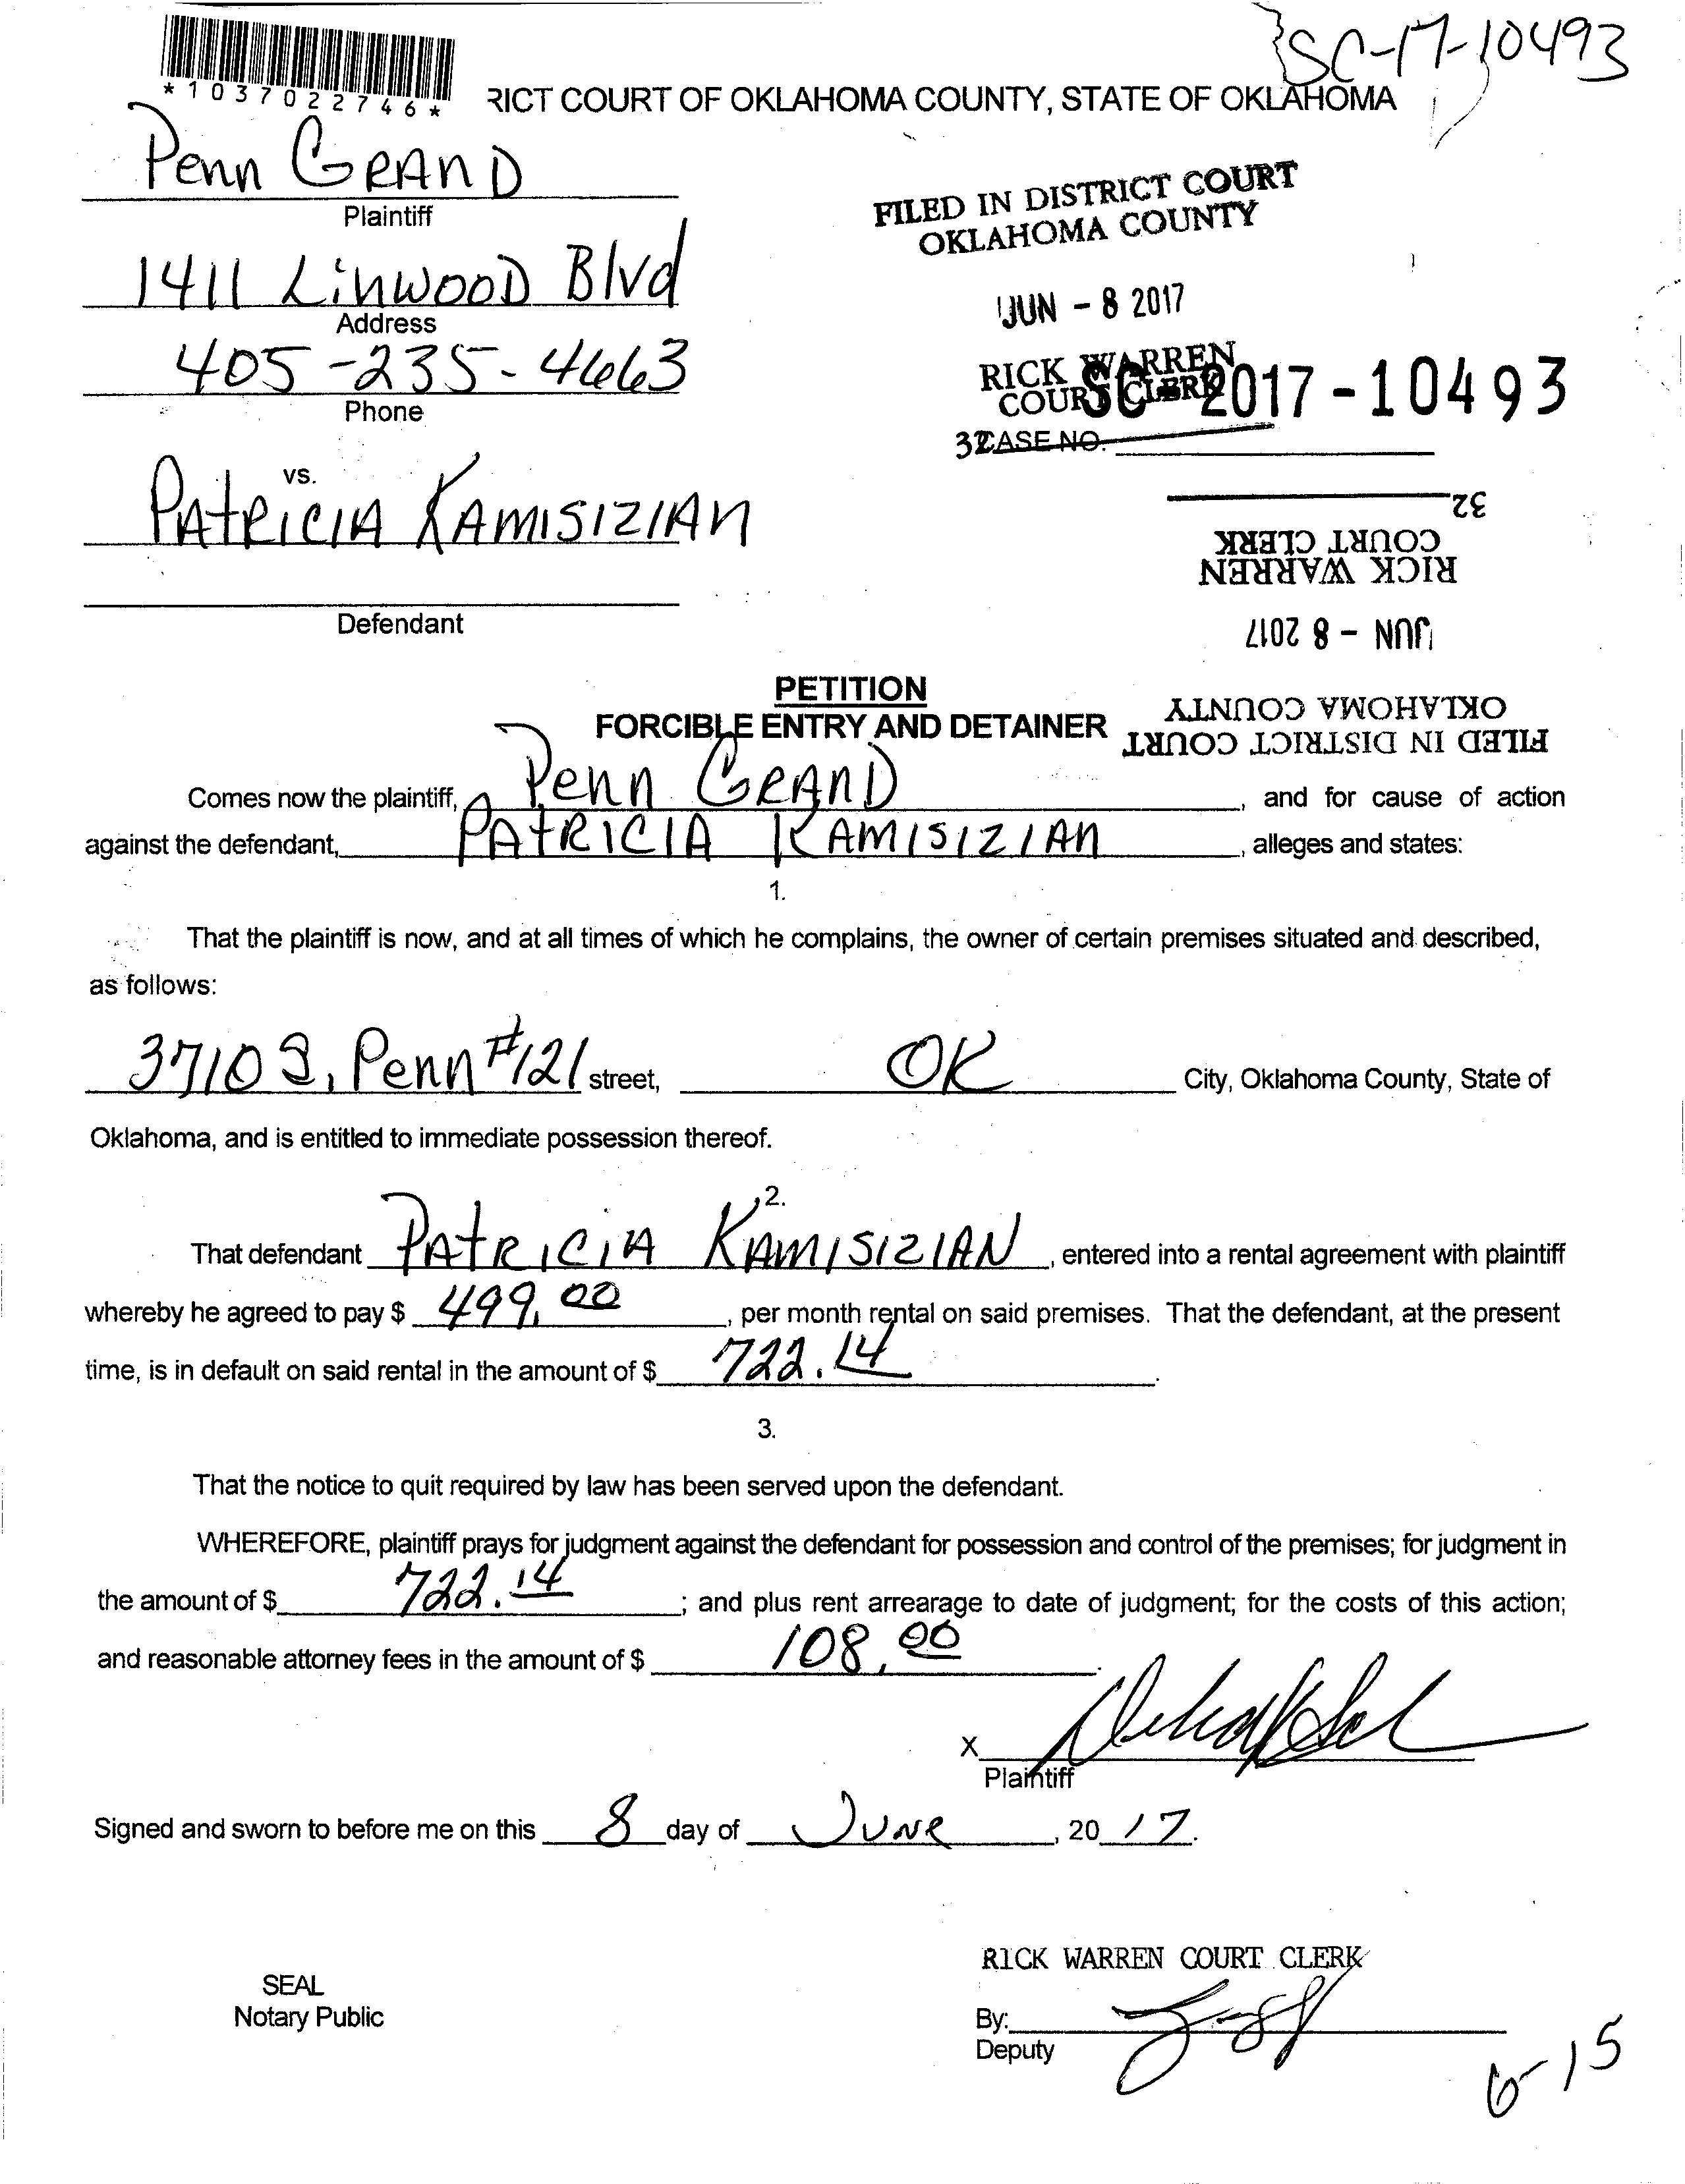 SC-17-10493
*1037022746*
RICT COURT OF OKLAHOMA COUNTY, STATE OF OKLAHOMA
Penn GRAND
Plaintiff
FILED IN DISTRICT COURT
OKLAHOMA COUNTY
1411 Linwood Blvd
Address
JUN - 8 2017
405-235-4663
Phone
RICK WARREN
COURT CLERK
SC-2017-10493
32
CASE NO.
vs.
PATRICIA KAMISIZIAN
Defendant
32
COURT CLERK
RICK WARREN
JUN - 8 2017
OKLAHOMA COUNTY
FILED IN DISTRICT COURT
PETITION
FORCIBLE ENTRY AND DETAINER
Comes now the plaintiff, Penn GRAND, and for cause of action
against the defendant, PATRICIA KAMISIZIAN, alleges and states:
1.
That the plaintiff is now, and at all times of which he complains, the owner of certain premises situated and described,
as follows:
3710 S. Penn #121 street, OK City, Oklahoma County, State of
Oklahoma, and is entitled to immediate possession thereof.
2.
That defendant PATRICIA KAMISIZIAN, entered into a rental agreement with plaintiff
whereby he agreed to pay $ 499.00, per month rental on said premises. That the defendant, at the present
time, is in default on said rental in the amount of $ 722.14.
3.
That the notice to quit required by law has been served upon the defendant.
WHEREFORE, plaintiff prays for judgment against the defendant for possession and control of the premises; for judgment in
the amount of $ 722.14; and plus rent arrearage to date of judgment; for the costs of this action;
and reasonable attorney fees in the amount of $ 108.00.
X
Plaintiff
Signed and sworn to before me on this 8 day of June, 2017.
RICK WARREN COURT CLERK
SEAL
Notary Public
By:
Deputy
6-15